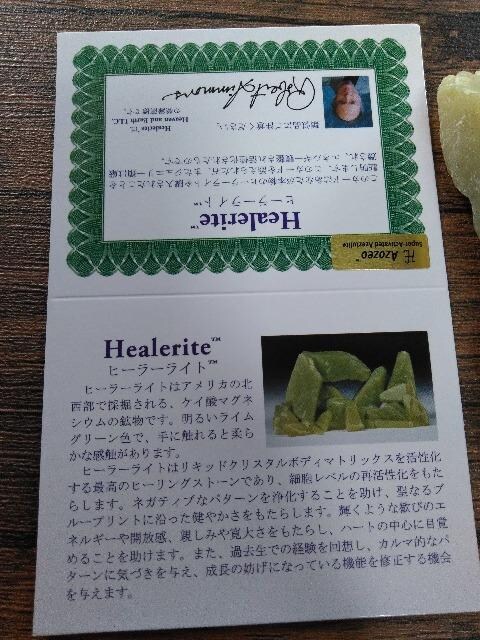 Healerite™
ヒーラーライト™
このカードにあなたが本物のヒーラーライトを購入されたことを
類似品にご注意ください。
Healerite は、
Heaven and Earth LLC.
の登録商標です。
Robert Simmons
Azozeo™
Super-Activated Azeztulite
Healerite™
ヒーラーライト™
ヒーラーライトはアメリカの北
西部で採掘される、ケイ酸マグネ
シウムの鉱物です。明るいライム
グリーン色で、手に触れると柔ら
かな感触があります。
ヒーラーライトはリキッドクリスタルボディマトリックスを活性化
する最高のヒーリングストーンであり、細胞レベルの再活性化をもた
らします。ネガティブなパターンを浄化することを助け、聖なるブ
ループリントに沿った健やかさをもたらします。輝くような歓びのエ
ネルギーや開放感、親しみや寛大さをもたらし、ハートの中心に目覚
めることを助けます。また、過去生での経験を回想し、カルマ的なパ
ターンに気づきを与え、成長の妨げになっている機能を修正する機会
を与えます。